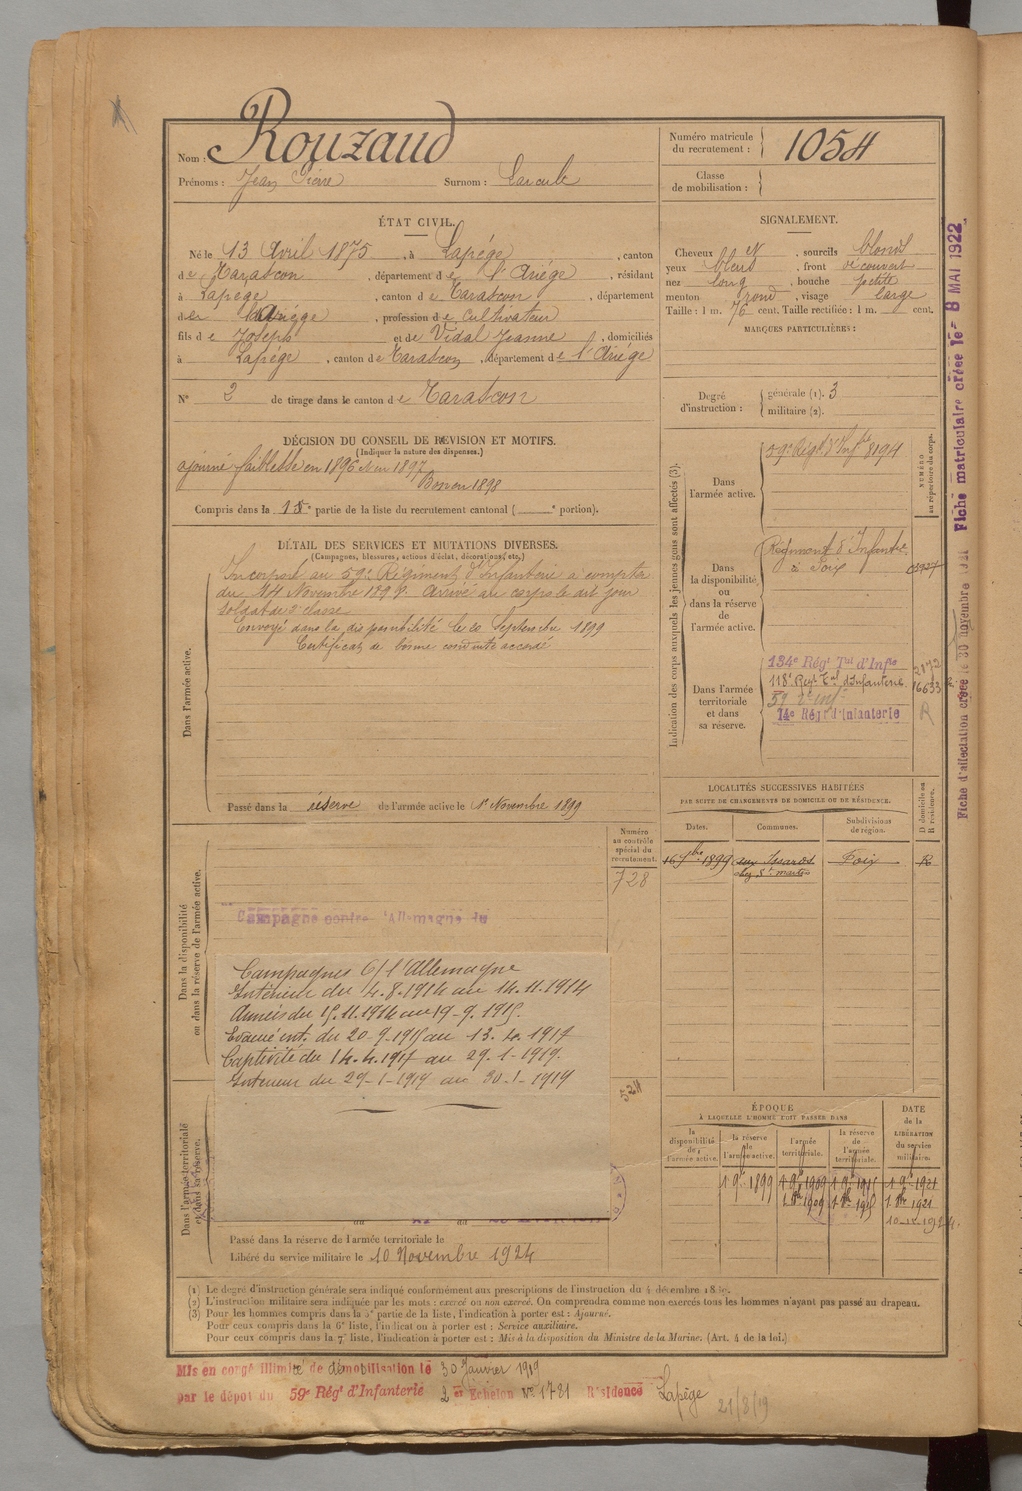 Nom : Rouzaud
Prénoms : Jean Pierre Surnom :
Numéro matricule
du recrutement : 1054
Classe
de mobilisation :
ÉTAT CIVIL.
Né le 13 Avril 1875, à Lapège, canton
de Tarascon, département de l'Ariège, résidant
à Lapège, canton de Tarascon, département
de l'Ariège, profession de Cultivateur
fils de Joseph et de Vidal Jeanne, domiciliés
à Lapège, canton de Tarascon, département de l'Ariège
N° 2 de tirage dans le canton de Tarascon
SIGNALEMENT.
Cheveux N, sourcils blonds
yeux bleus, front découvert
nez long, bouche petite
menton rond, visage large
Taille : 1 m. 76 cent. Taille rectifiée : 1 m. cent.
MARQUES PARTICULIÈRES :
Degré
d'instruction :
générale (1). 3
militaire (2).
DÉCISION DU CONSEIL DE RÉVISION ET MOTIFS.
(Indiquer la nature des dispenses.)
ajourné faiblesse en 1896 et en 1897
Bon en 1898
Compris dans la 15e partie de la liste du recrutement cantonal ( e portion).
DÉTAIL DES SERVICES ET MUTATIONS DIVERSES.
(Campagnes, blessures, actions d'éclat, décorations, etc.)
Dans l'armée active.
Incorporé au 59e Régiment d'Infanterie à compter
du 14 Novembre 1898. Arrivé au corps le dit jour
soldat de 2e classe
Envoyé dans la disponibilité le 20 Septembre 1899
Certificat de bonne conduite accordé
Passé dans la réserve de l'armée active le 1er Novembre 1899
Indication des corps auxquels les jeunes gens sont affectés (3).
NUMÉRO
au répertoire du corps.
Dans
l'armée active.
59e Régt d'Infrie 8194
Dans
la disponibilité
ou
dans la réserve
de
l'armée active.
Régiment d'Infantie
à Foix
Dans l'armée
territoriale
et dans
sa réserve.
134e Régt Tal d'Infie 2172
118e Régt Tal d'Infanterie. 16633
59
14e Régt d'Infanterie R
LOCALITÉS SUCCESSIVES HABITÉES
PAR SUITE DE CHANGEMENTS DE DOMICILE OU DE RÉSIDENCE.
Dates. Communes. Subdivisions
de région. D domicile ou
R résidence.
16 7bre 1899 aux Issards Foix R
chez St martin
Numéro
au contrôle
spécial du
recrutement.
728
Dans la disponibilité
ou dans la réserve de l'armée active.
Campagne contre l'Allemagne du
Campagnes C/ l'Allemagne
Intérieur du 4.8.1914 au 14.11.1914
Armées du 15.11.1914 au 19-9.1915.
Evacué int. du 20-9-1915 au 13.4.1917
Captivité du 14.4.1917 au 29.1-1919.
Intérieur du 29-1-1919 au 30-1-1919
Dans l'armée territoriale
et dans sa réserve.
Passé dans la réserve de l'armée territoriale le
Libéré du service militaire le 10 Novembre 1924
ÉPOQUE
À LAQUELLE L'HOMME DOIT PASSER DANS
DATE
de la
LIBÉRATION
du service
militaire.
la
disponibilité
de
l'armée active.
la réserve
de
l'armée active.
l'armée
territoriale.
la réserve
de
l'armée
territoriale.
1 9bre 1899 1 9bre 1909 1 9bre 1915 1 9bre 1921
(1) Le degré d'instruction générale sera indiqué conformément aux prescriptions de l'instruction du 4 décembre 1889.
(2) L'instruction militaire sera indiquée par les mots : exercé ou non exercé. On comprendra comme non exercés tous les hommes n'ayant pas passé au drapeau.
(3) Pour les hommes compris dans la 5e partie de la liste, l'indication à porter est : Ajourné.
Pour ceux compris dans la 6e liste, l'indication à porter est : Service auxiliaire.
Pour ceux compris dans la 7e liste, l'indication à porter est : Mis à la disposition du Ministre de la Marine. (Art. 4 de la loi.)
Mis en congé illimité de démobilisation le 30 Janvier 1919
par le dépôt du 59e Régt d'Infanterie 2er Echelon No 1781 Résidence Lapège
21/8/19
Fiche d'affectation créée le 30 novembre Fiche matriculaire créée le - 8 MAI 1922